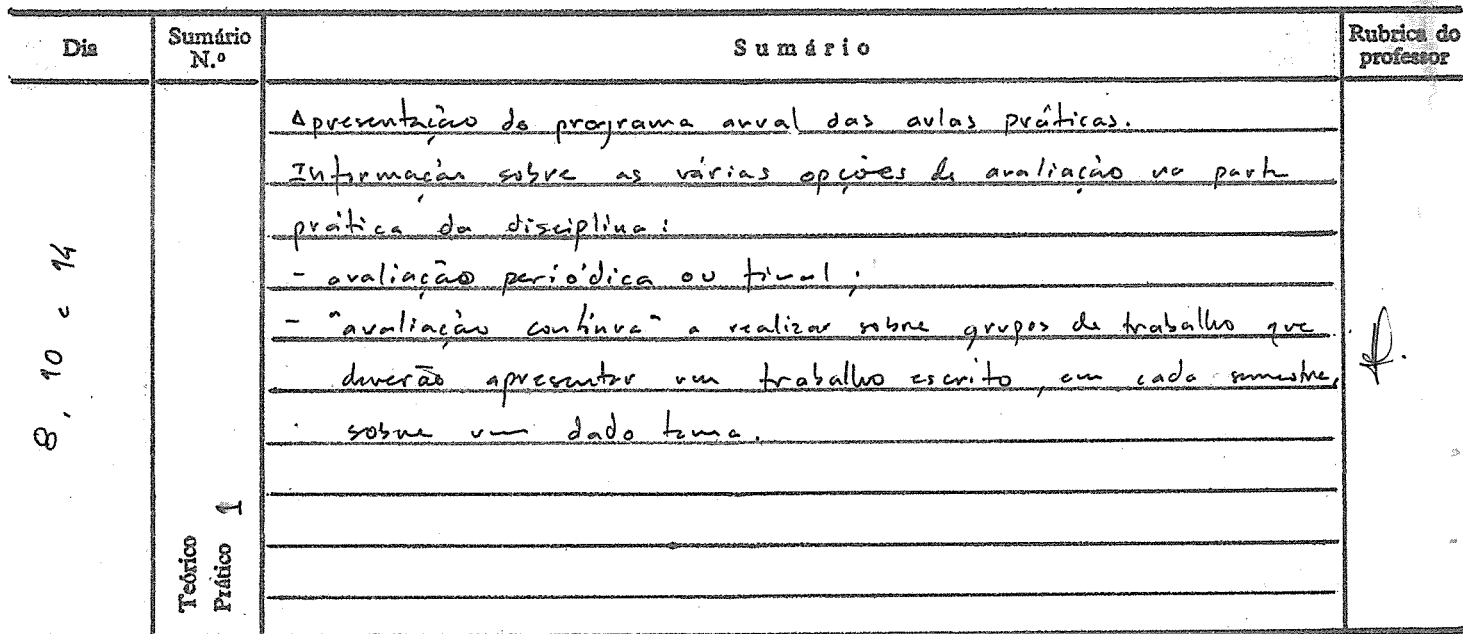 Dia
Sumário N.º
Sumário
Rubrica do professor
8, 10 e 14
Teórico
Prático 1
Apresentação do programa anual das aulas práticas.
Informação sobre as várias opções de avaliação na parte
prática da disciplina:
- avaliação periódica ou final;
- "avaliação contínua" a realizar sobre grupos de trabalho que
deverão apresentar um trabalho escrito, em cada semestre,
sobre um dado tema.